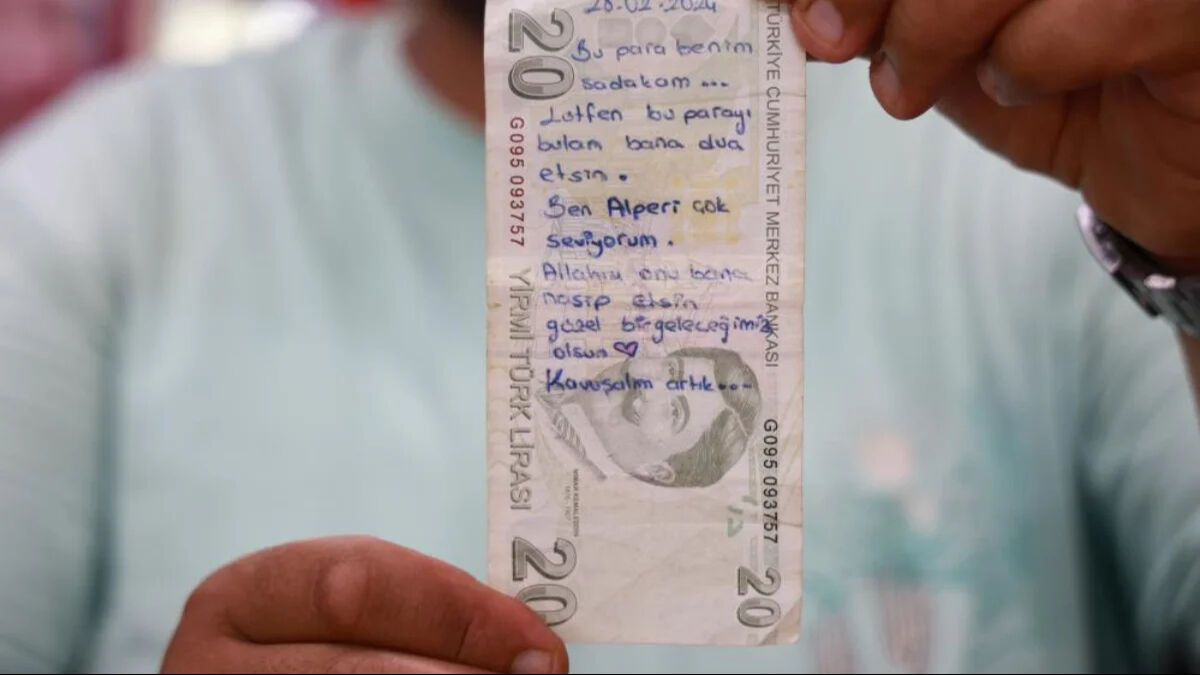 28.02.2024
Bu para benim
sadakam ...
Lutfen bu parayı
bulan bana dua
etsin.
Ben Alperi çok
seviyorum.
Allahım onu bana
nasip etsin
güzel bir geleceğimiz
olsun ♡
Kavuşalım artık....
20
G095 093757
YİRMİ TÜRK LİRASI
20
TÜRKİYE CUMHURİYET MERKEZ BANKASI
G095 093757
20